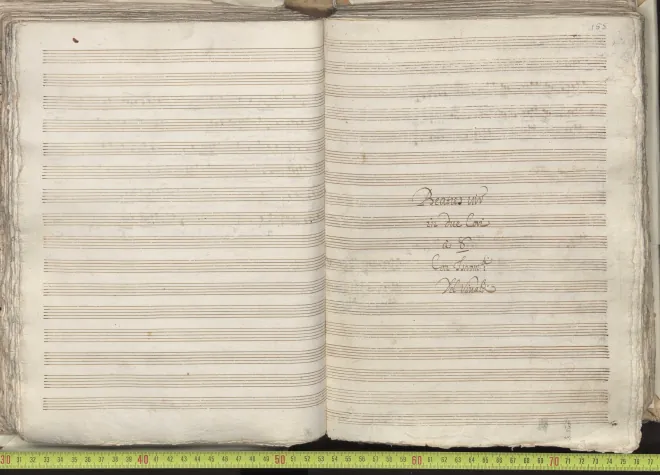 165
Beatus vir
in due Cori
à 8
Con Strom.ti
Del Vivaldi
30 31 32 33 34 35 36 37 38 39 40 41 42 43 44 45 46 47 48 49 50 51 52 53 54 55 56 57 58 59 60 61 62 63 64 65 66 67 68 69 70 71 72 73 74 75 76 77